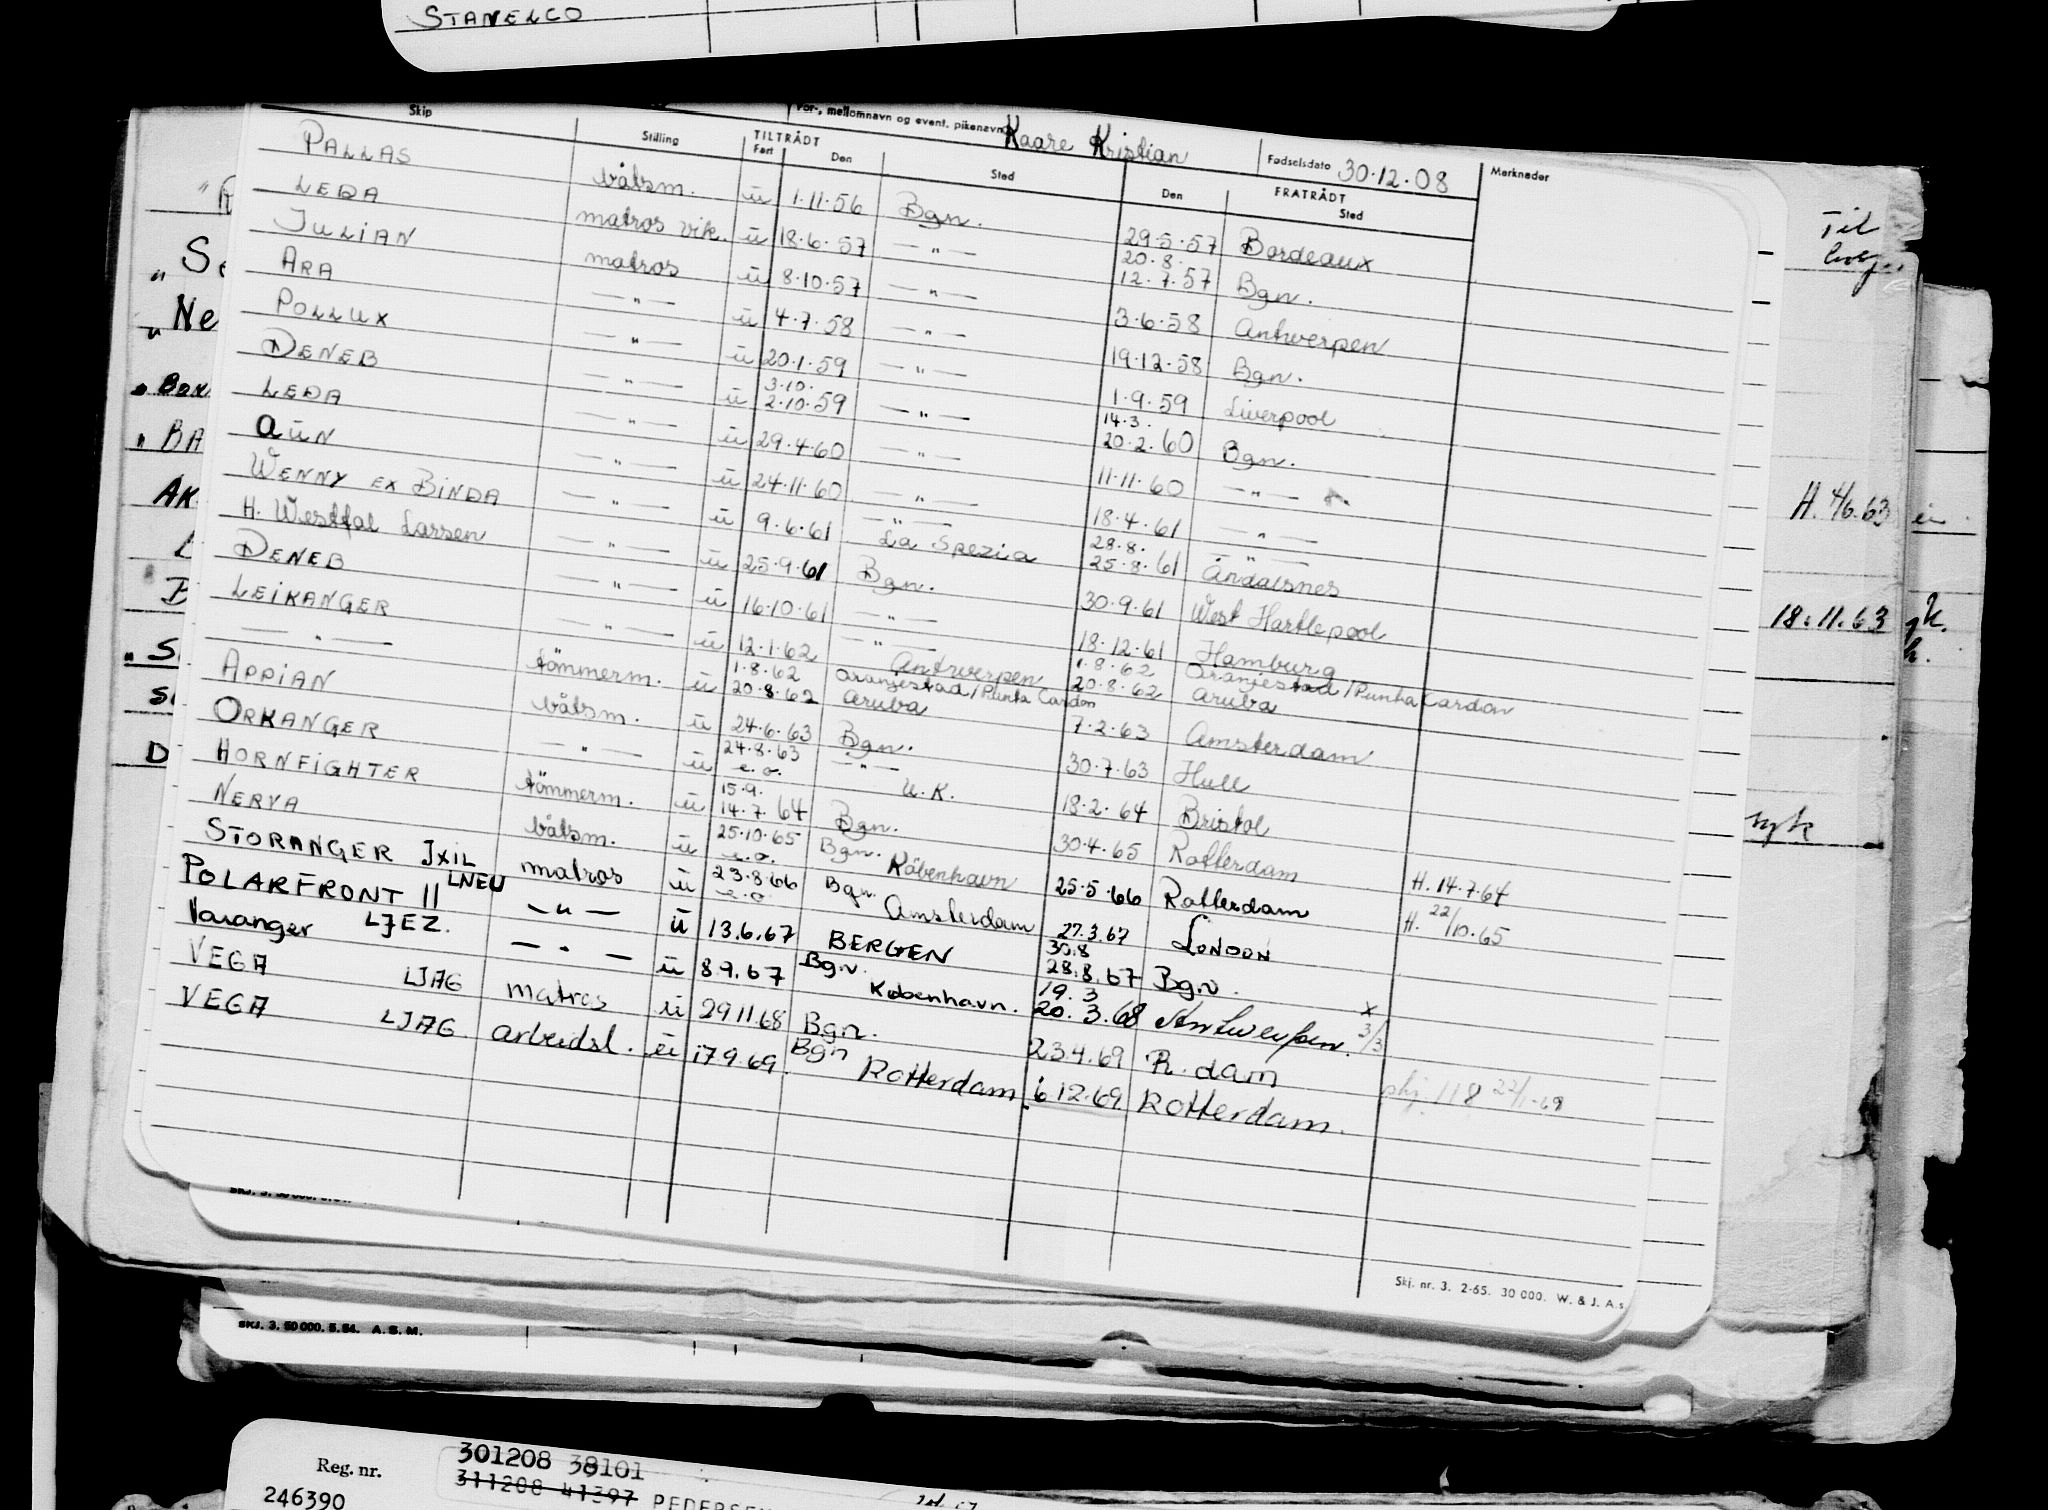 STANELCO
For-, mellomnavn og event. pikenavn Kaare Kristian Fødselsdato 30.12.08
Skip Stilling TILTRÅDT Fart Den Sted FRATRÅDT Den Sted Merknader
PALLAS båtsm. u 1.11.56 Bgn. 29.5.57 Bordeaux
LEDA matros vik. u 18.6.57 — " — 20.8. 12.7.57 Bgn.
JULIAN matros u 8.10.57 — " — 3.6.58 Antwerpen
ARA — " — u 4.7.58 — " — 19.12.58 Bgn.
POLLUX — " — u 20.1.59 — " — 1.9.59 Liverpool
DENEB — " — u 3.10. 2.10.59 — " — 14.3. 20.2.60 Bgn.
LEDA — " — u 29.4.60 — " — 11.11.60 — " —
AUN — " — u 24.11.60 — " — 18.4.61 — " —
WENNY EX BINDA — " — u 9.6.61 — " — La Spezia 28.8. 25.8.61 — " — Åndalsnes
H. Westfal Larsen — " — u 25.9.61 Bgn. 30.9.61 West Hartlepool
DENEB — " — u 16.10.61 — " — 18.12.61 Hamburg
LEIKANGER — " — u 12.1.62 — " — Antwerpen 1.8.62 20.8.62 Oranjestad/Punta Cardon Aruba
— " — tömmerm. u 1.8.62 20.8.62 Oranjestad/Punta Cardon Aruba 7.2.63 Amsterdam
APPIAN båtsm. u 24.6.63 Bgn. 30.7.63 Hull
ORKANGER — " — u 24.8.63 e.o. — " — U.K. 18.2.64 Bristol
HORNFIGHTER tömmerm. u 15.9. 14.7.64 Bgn. 30.4.65 Rotterdam H. 14.7.64
NERVA båtsm. u 25.10.65 e.o. Bgn. Köbenhavn 25.5.66 Rotterdam H. 22/10.65
STORANGER JXIL matros u 23.8.66 e.o. Bgn. Amsterdam 27.3.67 LONDON
POLARFRONT II LNEU — " — u 13.6.67 BERGEN 30.8 28.8.67 Bgn.
Varanger LJEZ. — " — u 8.9.67 Bgn. København. 19.3 20.3.68 Antwerpen. x 3/3
VEGA LJAG matros u 29.11.68 Bgn. 23.4.69 R.dam
VEGA LJAG arbeidsl. u 17.9.69 Bgn Rotterdam 6.12.69 Rotterdam. 118 22/1-69
Skj. nr. 3. 2-65. 30 000. W. & J. A.s
Til
H. 4/6.63
18.11.63
" Se
" Ne
BA
AK
D
SKJ. 3. 50 000. 5.54. A. S. M.
Reg. nr. 301208 38101
311208 41397 PEDERSEN
246390